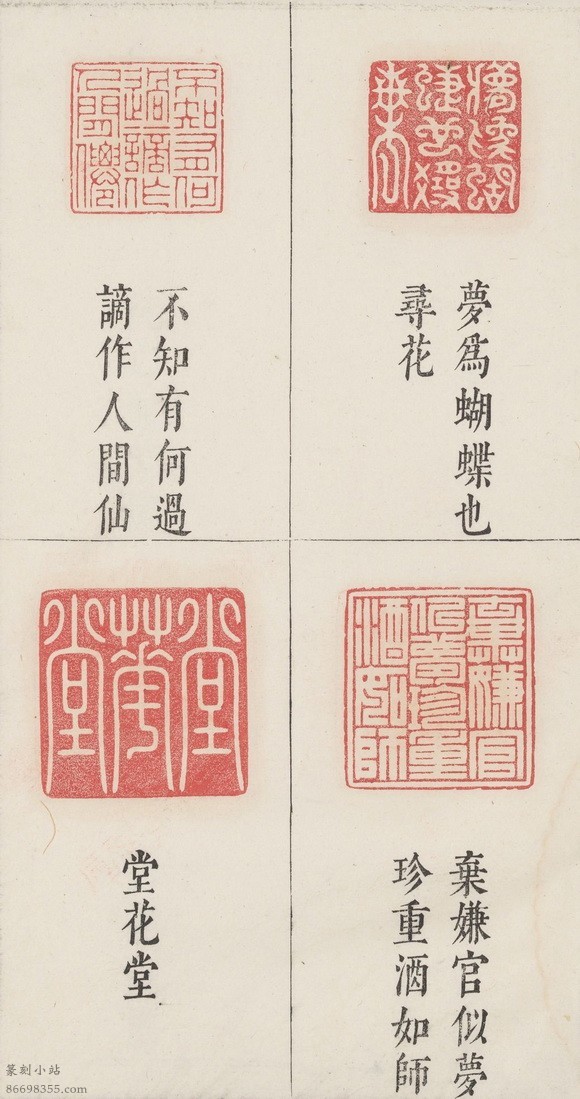 夢爲蝴蝶也
尋花
不知有何過
謫作人間仙
棄嫌官似夢
珍重酒如師
堂花堂
篆刻小站
86698355.com